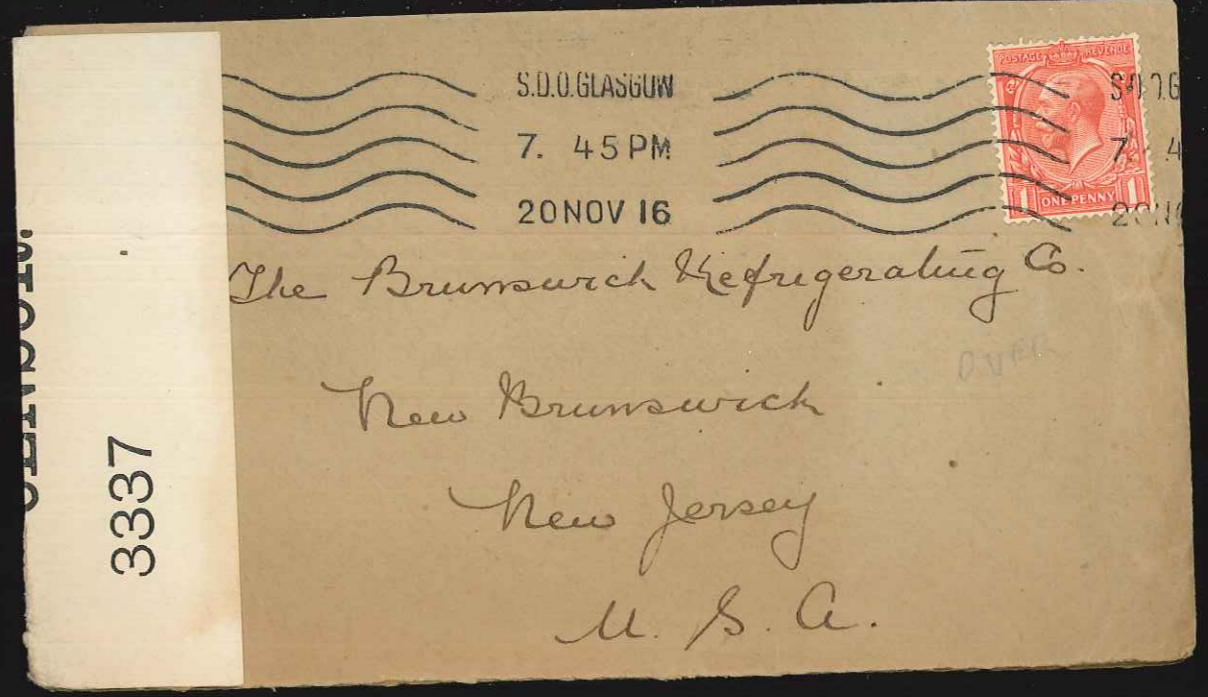 S.D.O.GLASGOW
7. 45 PM
20 NOV 16
POSTAGE REVENUE
1 ONE PENNY 1
The Brunswick Refrigerating Co.
OVER
New Brunswick
New Jersey
U. S. A.
3337